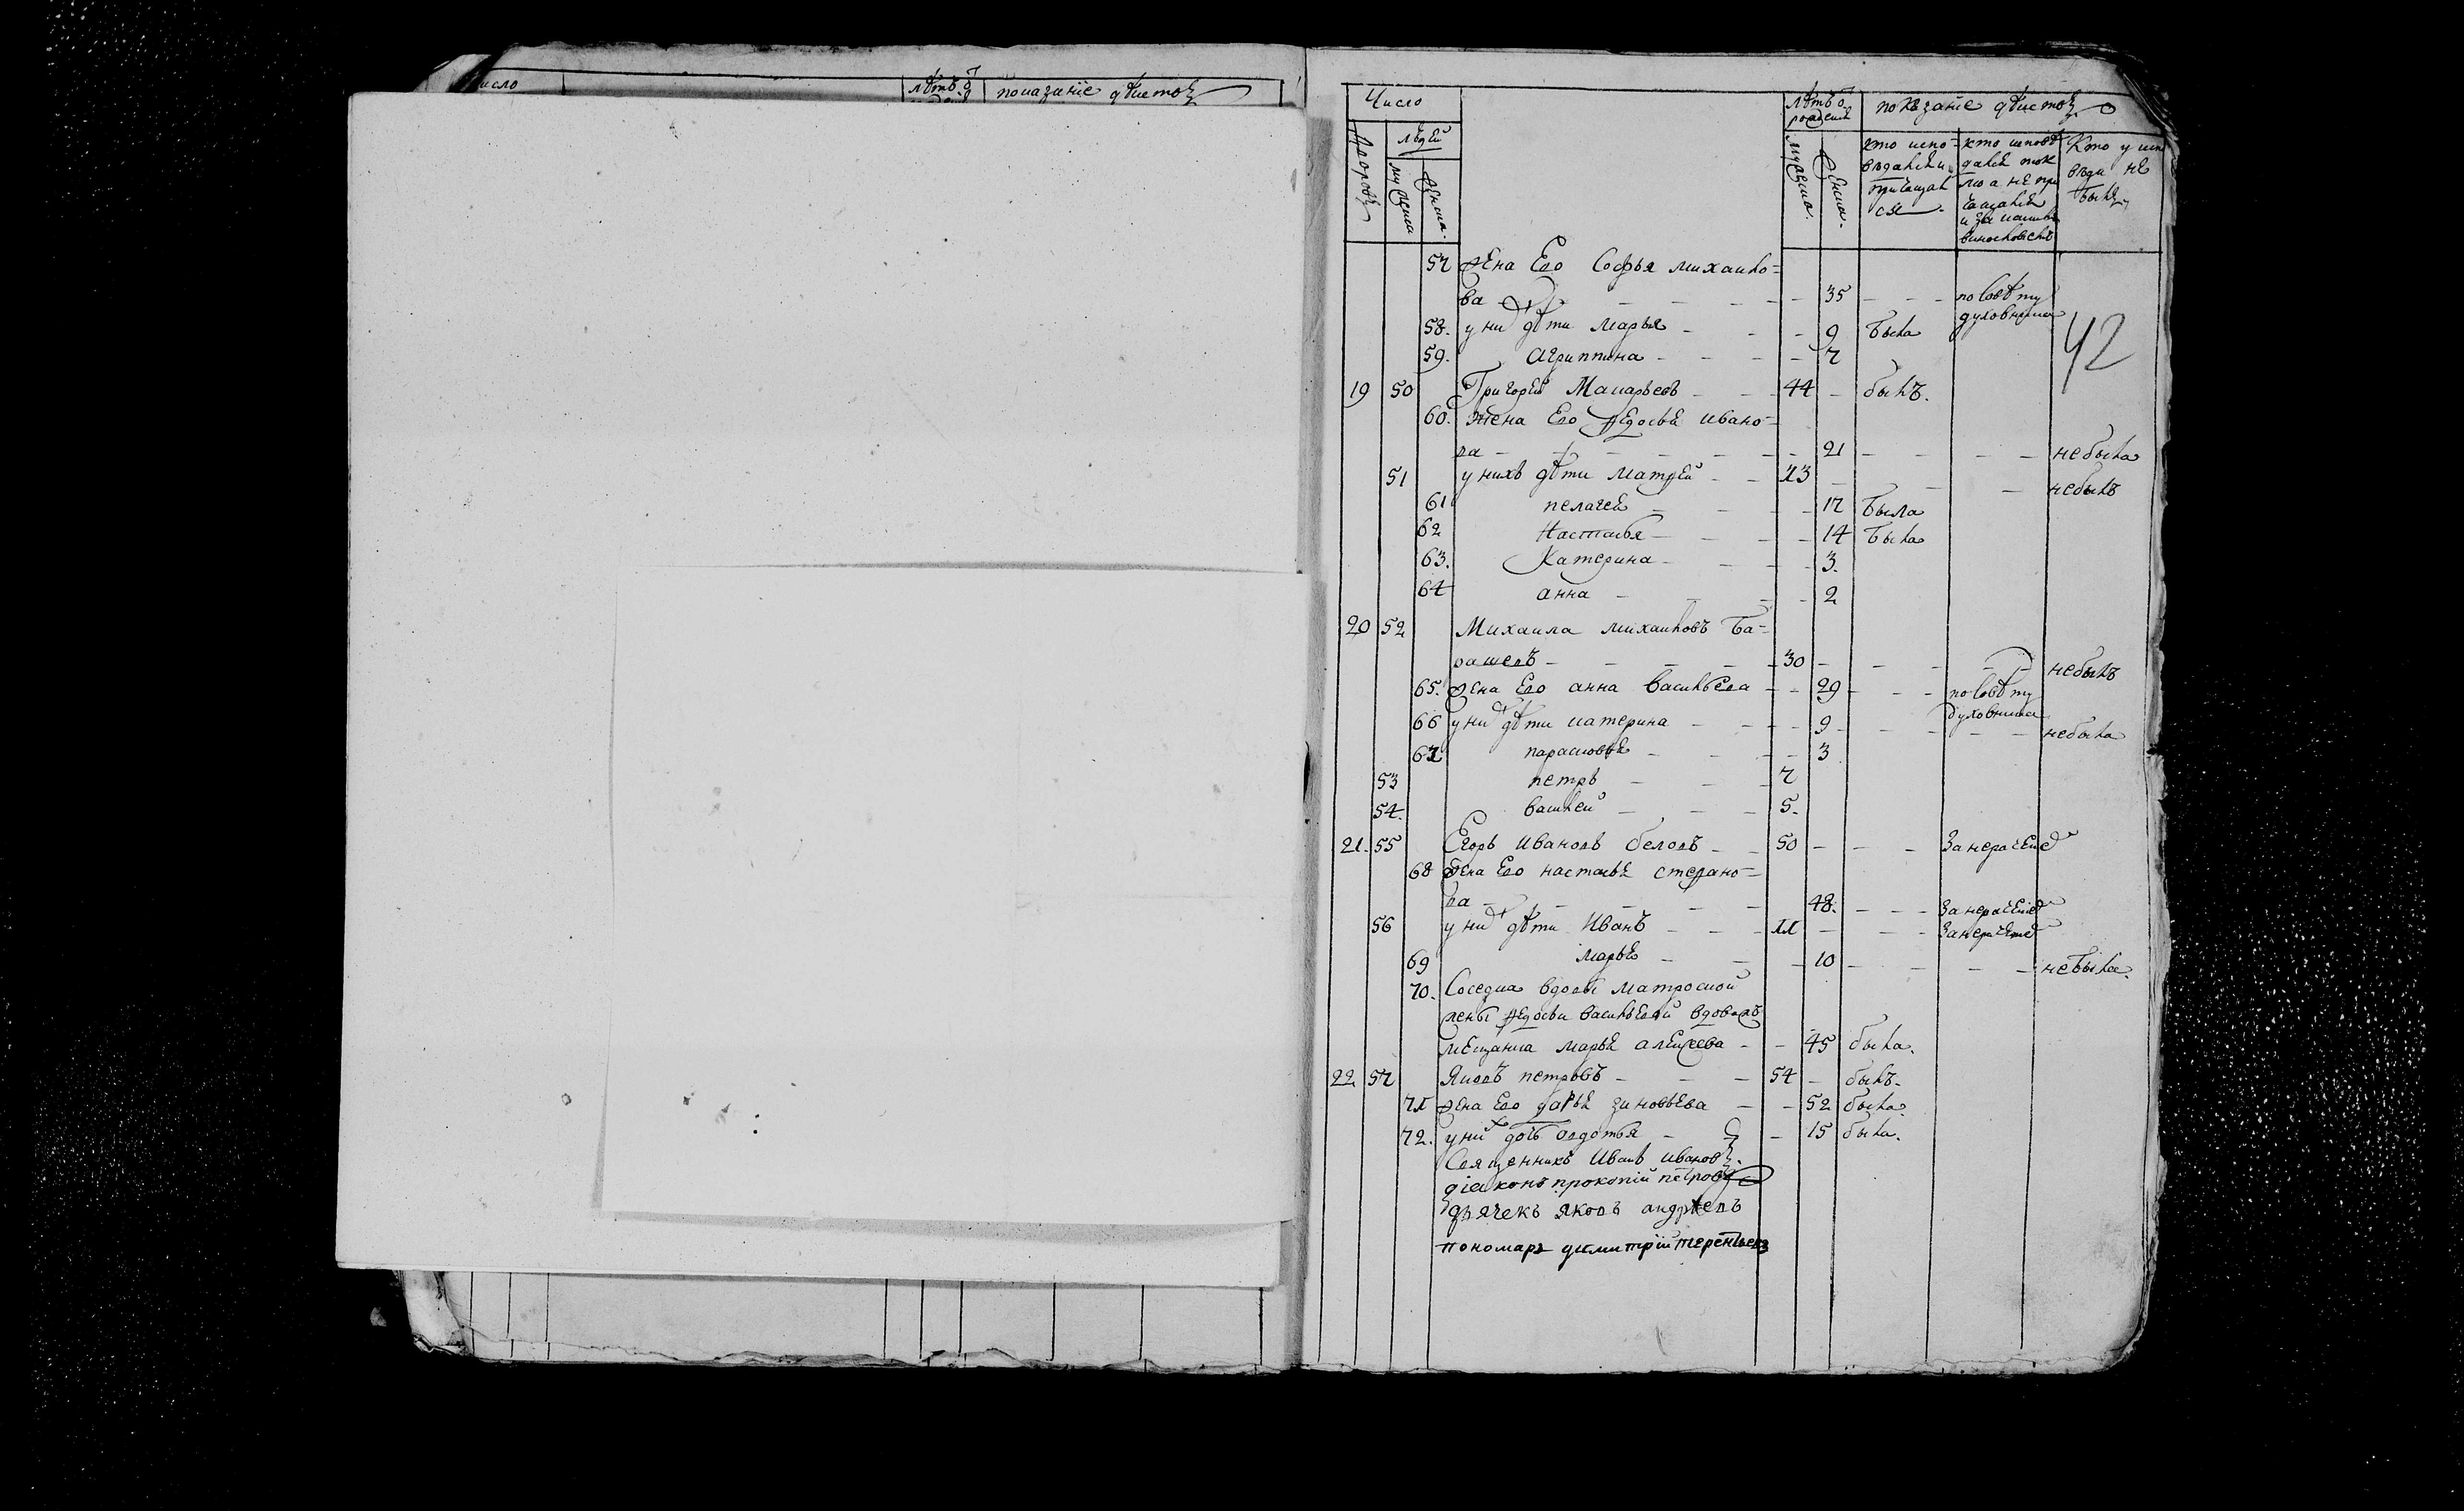 исло лѣтъ ѿ показаніе дѣистъ
Число лѣтъ ѿ рожденія показаніе дѣистъ
Дворовъ людей мужеска женска мужеска женска
кто испо- кто исповѣ Кто у исп
вѣдалися и дался ток овѣди не
причащал мо а не при былъ
ся чащался
57 жена Его Софья михаило=
ва 35 по совѣту
духовника
58. у них дѣти Марья 9 была
59. Агриппина 7
42
19 50 Григорей Макарьевъ 44 былъ.
60. жена Его Федосья ивано=
ва 21 небыла
51 у нихъ дѣти Матфей 13 небылъ
61 пелагея 17 была
62 Настасья 14 была
63. Катерина 3.
64 анна 2
20 52 Михаила михаиловъ Ба=
рашевъ 30 небылъ
65. жена Его анна васильева 29 по совѣту
духовника
66 у них дѣти катерина 9 небыла
67 парасковья 3
53 петръ 7
54. василей 5.
21. 55 Егоръ Ивановъ беловъ 50 Занерачение
68 жена Его настасья стефано=
ва 48. Занерачение
56 у них дѣти Иванъ 11 Занерачение
69 марья 10 небыла.
70. Соседка вдовы матроской
жены федосьи васильевой вдова
мещанка марья алексеева 45 была.
22 57 Яковъ петровъ 54 былъ.
71 жена Его дарья зиновьева 52 была.
72. у них дочь авдотья 15 была.
Священникъ Иванъ Ивановъ.
діаконъ прокопій петровъ
дьячекъ яковъ андреевъ
пономарь димитрій терентьевъ